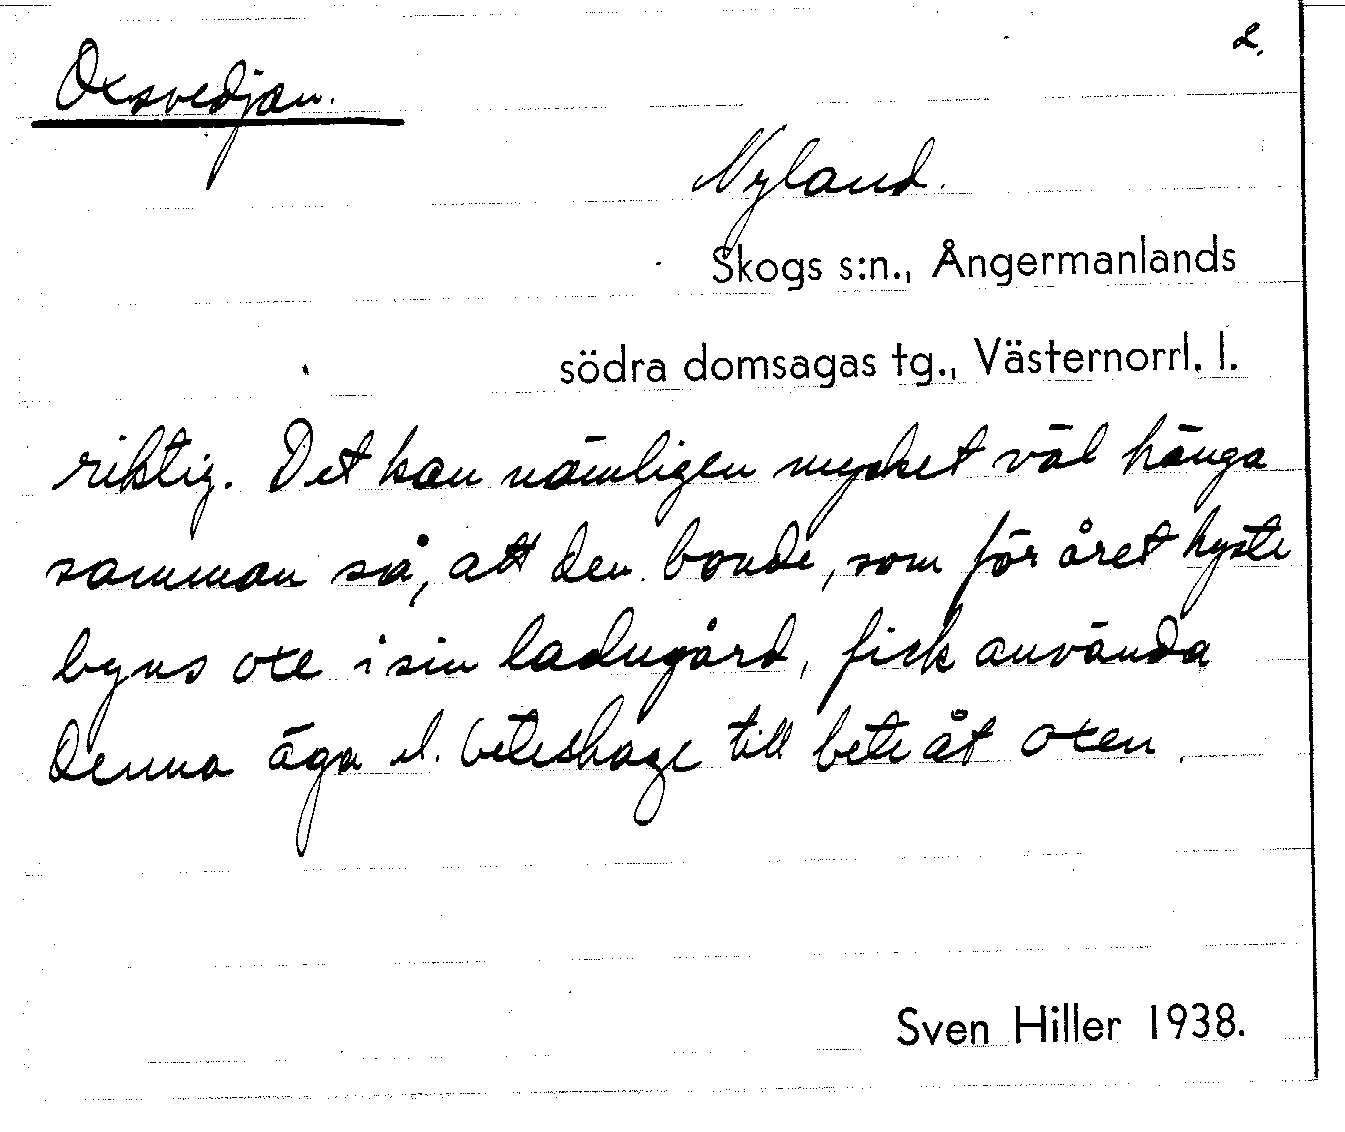 2.
Oxsvedjan.
Nyland.
Skogs s:n., Ångermanlands
södra domsagas tg., Västernorrl. l.
riktig. Det kan nämligen mycket väl hänga
samman så, att den bonde, som för året hyste
byns oxe i sin ladugård, fick använda
denna äga el. beteshage till bete åt oxen.
Sven Hiller 1938.